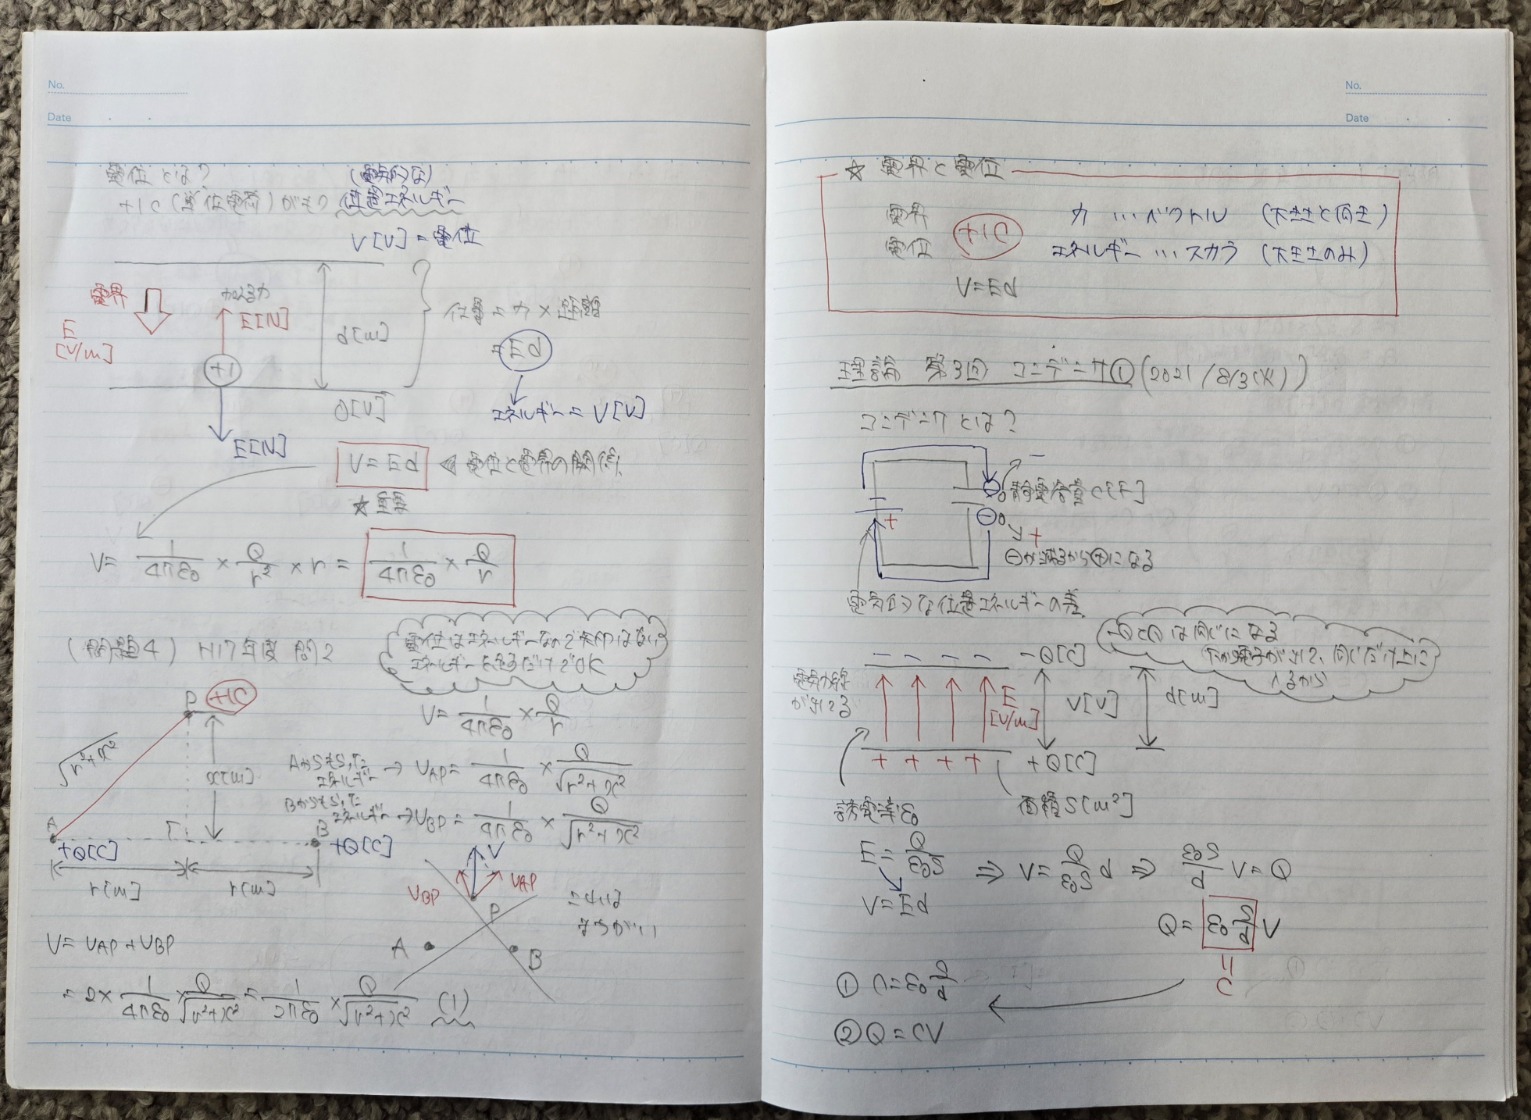 No.
Date
電位とは?
(電気的な)
+1C(単位電荷)がもつ位置エネルギー
V[V]=電位
電界
E
[V/m]
加える力
E[N]
+1
E[N]
d[m]
0[V]
仕事=力×距離
=Ed
エネルギー=V[V]
V=Ed ◀電位と電界の関係
☆重要
V= 1/4πε0 × Q/r² × r = 1/4πε0 × Q/r
(問題4) H17年度 問2
電位はエネルギーなので矢印はない
エネルギーを足すだけでOK
P +1C
√r²+x²
x[m]
A
+Q[C]
B
+Q[C]
r[m] r[m]
V= 1/4πε0 × Q/r
Aからもらったエネルギー → VAP= 1/4πε0 × Q/√r²+x²
Bからもらったエネルギー → VBP= 1/4πε0 × Q/√r²+x²
V
VBP VAP
P
A B
これは
まちがい
V=VAP+VBP
=2× 1/4πε0 × Q/√r²+x² = 1/2πε0 × Q/√r²+x² (1)
No.
Date
☆ 電界と電位
電界 力…ベクトル (大きさと向き)
+1C
電位 エネルギー…スカラ (大きさのみ)
V=Ed
理論 第3回 コンデンサ① (2021/8/3(火))
コンデンサとは?
−
静電容量C[F]
+
+
⊖が減るから⊕になる
電気的な位置エネルギーの差
− − − − −Q[C]
−QとQは同じになる
下から電子がぬけて、同じだけ上に
入るから
電気力線
がでる
E
[V/m]
V[V]
d[m]
+ + + + +Q[C]
誘電率ε0
面積S[m²]
E= Q/ε0S
V=Ed
⇒ V= Q/ε0S d ⇒ ε0S/d V=Q
Q= ε0 S/d V
=
C
① C=ε0 S/d
② Q=CV